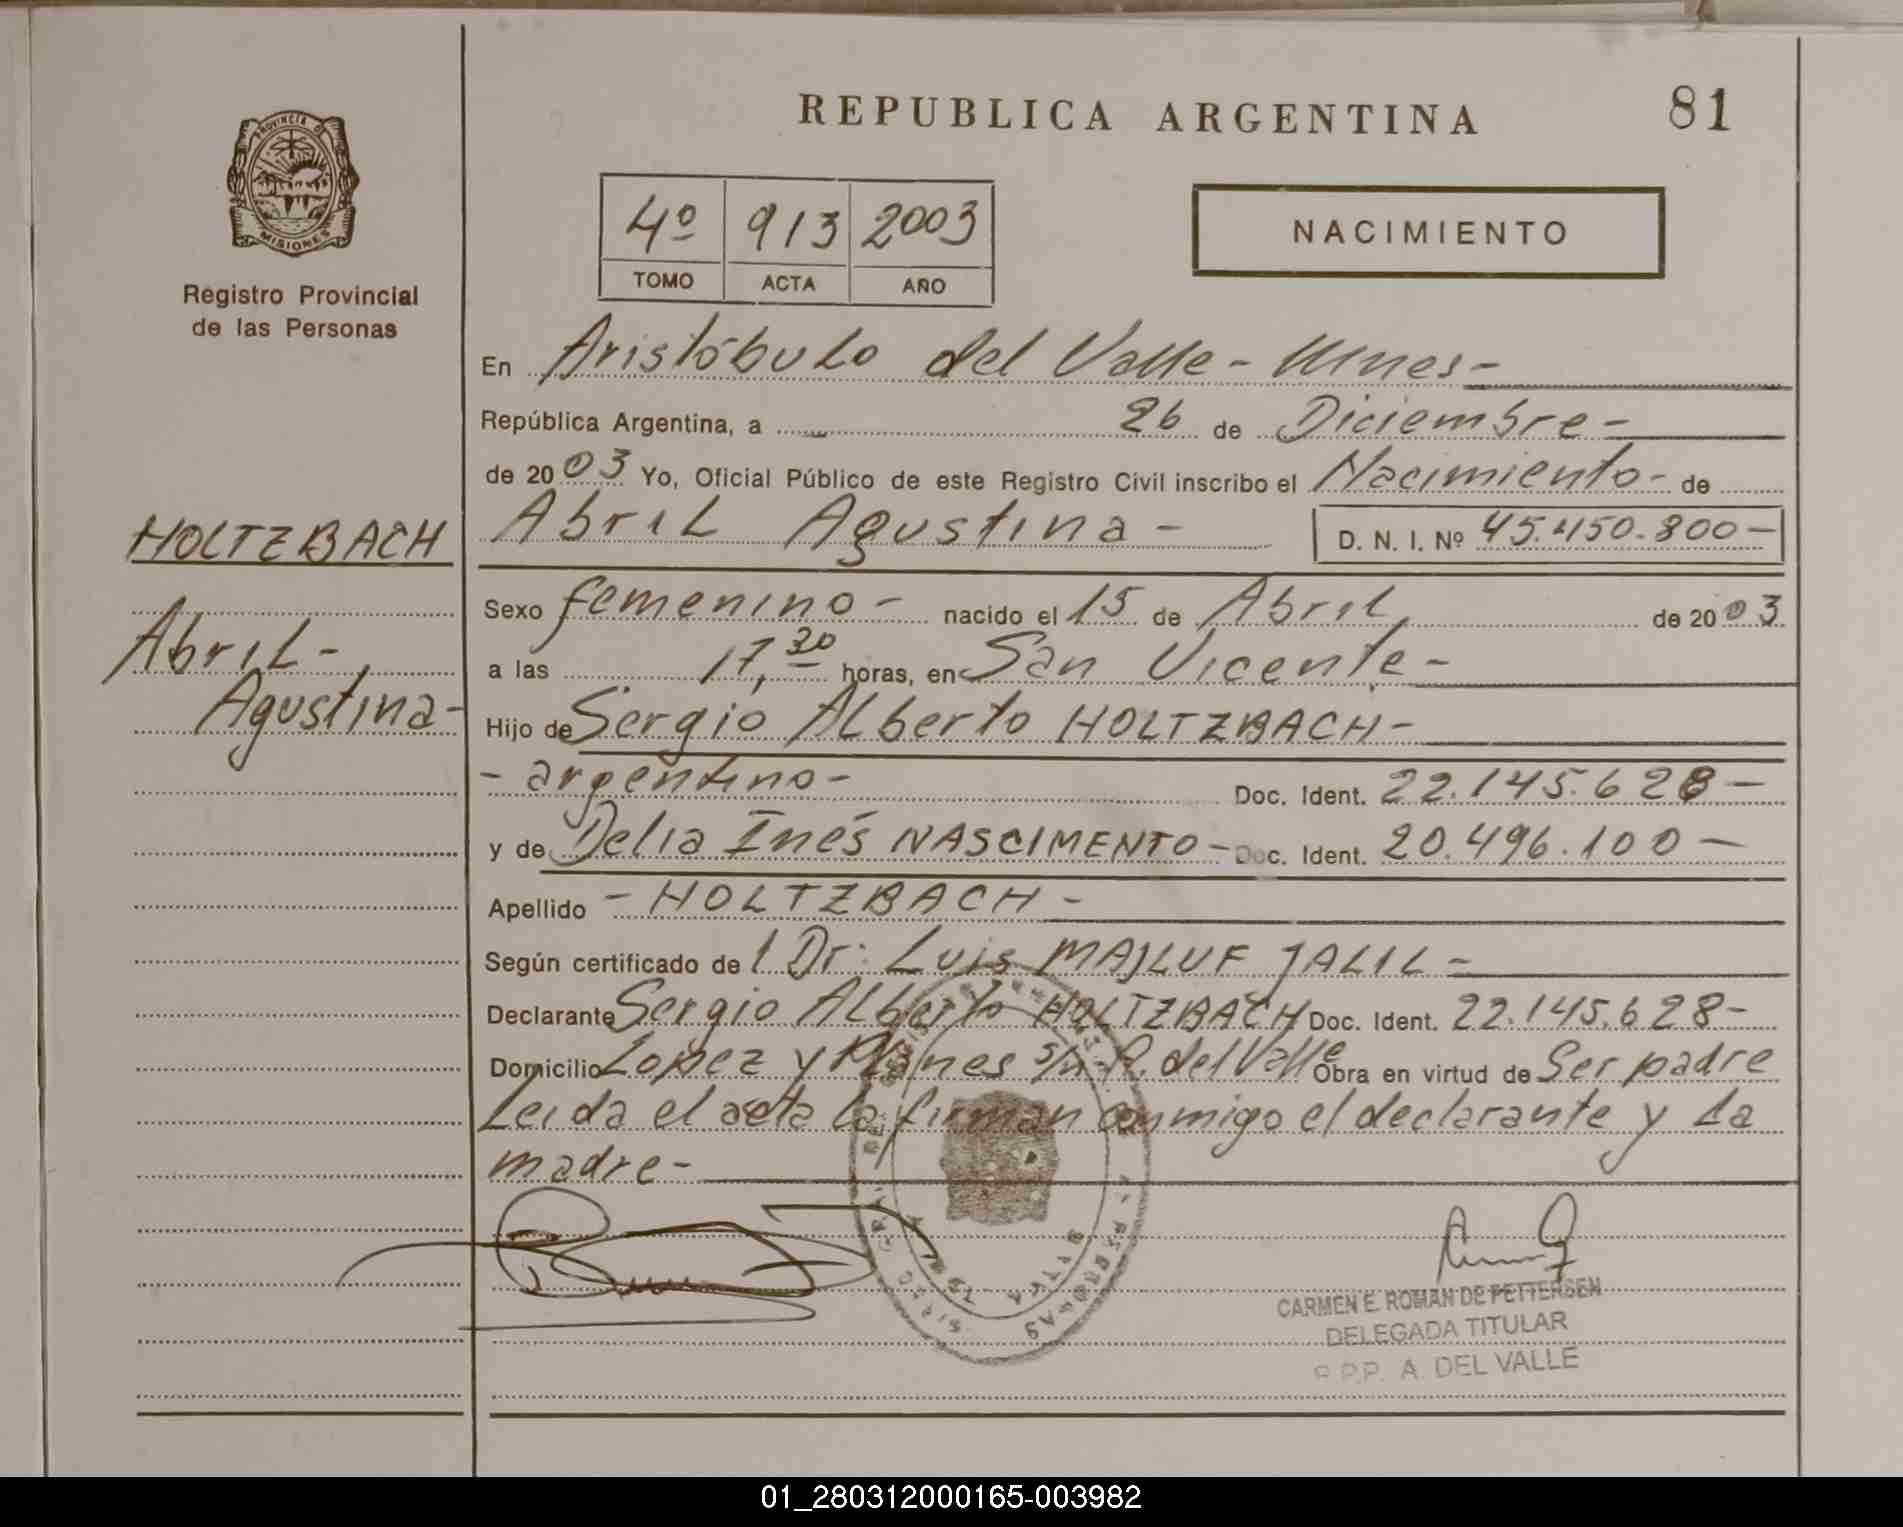 REPUBLICA ARGENTINA
81
PROVINCIA DE
MISIONES
Registro Provincial
de las Personas
4º 913 2003
TOMO ACTA AÑO
NACIMIENTO
En Aristóbulo del Valle - Mnes -
República Argentina, a 26 de Diciembre -
de 2003 Yo, Oficial Público de este Registro Civil inscribo el Nacimiento - de
HOLTZBACH
Abril Agustina -
D. N. I. Nº 45.450.800 -
Sexo femenino - nacido el 15 de Abril de 2003
Abril -
Agustina -
a las 17,30 horas, en San Vicente -
Hijo de Sergio Alberto HOLTZBACH -
- argentino - Doc. Ident. 22.145.628 -
y de Delia Inés NASCIMENTO - Doc. Ident. 20.496.100 -
Apellido - HOLTZBACH -
Según certificado de l Dr: Luis MAJLUF JALIL -
Declarante Sergio Alberto HOLTZBACH Doc. Ident. 22.145.628 -
Domicilio Lopez y Planes s/n - A. del Valle Obra en virtud de Ser padre
Leida el acta la firman conmigo el declarante y la
madre -
CARMEN E. ROMAN DE PETTERSEN
DELEGADA TITULAR
R.P.P. A. DEL VALLE
01_280312000165-003982